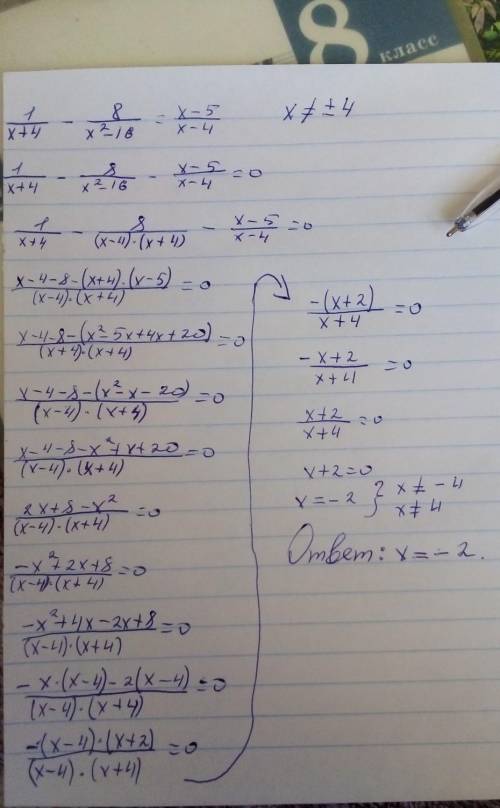 8
класс
1/(x+4) - 8/(x²-16) = (x-5)/(x-4)    x ≠ ±4
1/(x+4) - 8/(x²-16) - (x-5)/(x-4) = 0
1/(x+4) - 8/((x-4)·(x+4)) - (x-5)/(x-4) = 0
(x-4-8-(x+4)·(x-5))/((x-4)·(x+4)) = 0
(x-4-8-(x²-5x+4x+20))/((x+4)·(x+4)) = 0
(x-4-8-(x²-x-20))/((x-4)·(x+4)) = 0
(x-4-8-x²+x+20)/((x-4)·(x+4)) = 0
(2x+8-x²)/((x-4)·(x+4)) = 0
(-x²+2x+8)/((x-4)·(x+4)) = 0
(-x²+4x-2x+8)/((x-4)·(x+4)) = 0
(-x·(x-4)-2(x-4))/((x-4)·(x+4)) = 0
(-(x-4)·(x+2))/((x-4)·(x+4)) = 0
(-(x+2))/(x+4) = 0
(-x+2)/(x+4) = 0
(x+2)/(x+4) = 0
x+2=0
x=-2 } x ≠ -4
x ≠ 4
Ответ: x = -2.